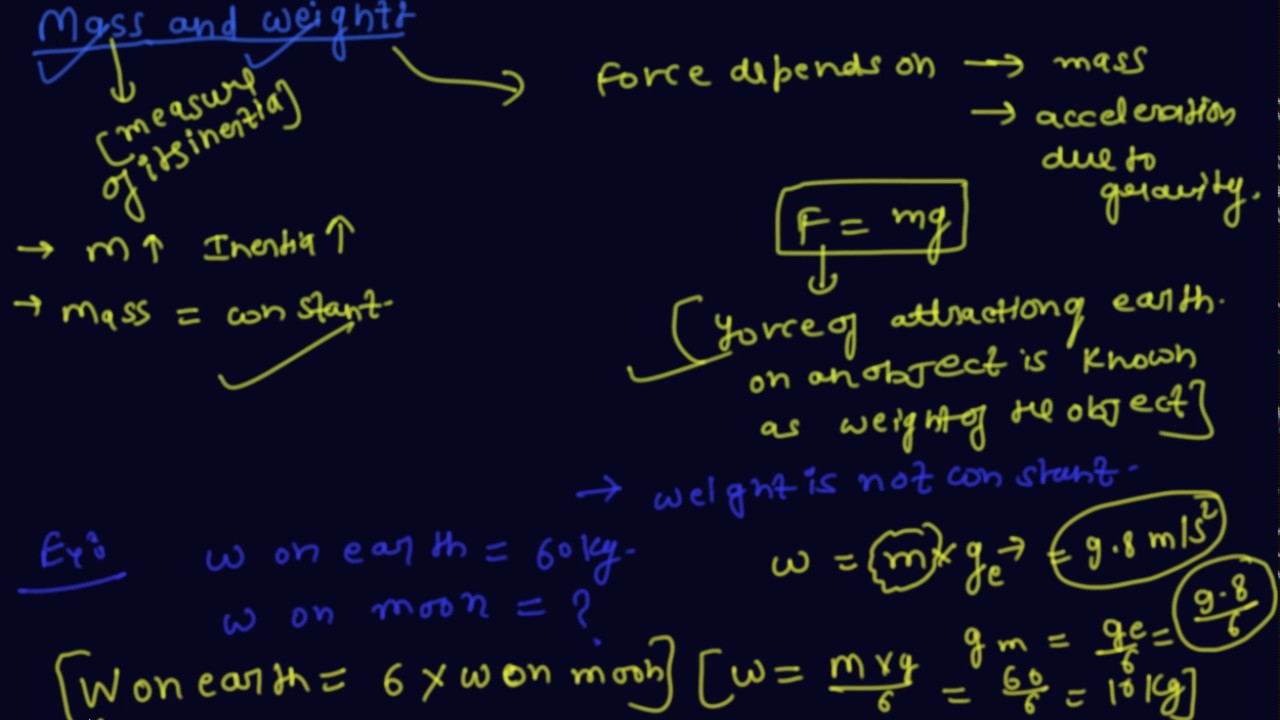 Mass and weight
[measure
of its inertia]
→ m↑ Inertia↑
→ mass = constant.
Force depends on → mass
→ acceleration
due to
gravity.
F = mg
[force of attraction of earth.
on an object is known
as weight of the object]
→ weight is not constant.
Ex:
W on earth = 60 kg.
W on moon = ?
[W on earth = 6 × W on moon]
W = m × ge → = 9.8 m/s²
gm = ge/6 = 9.8/6
[W = m×g/6 = 60/6 = 10 kg]